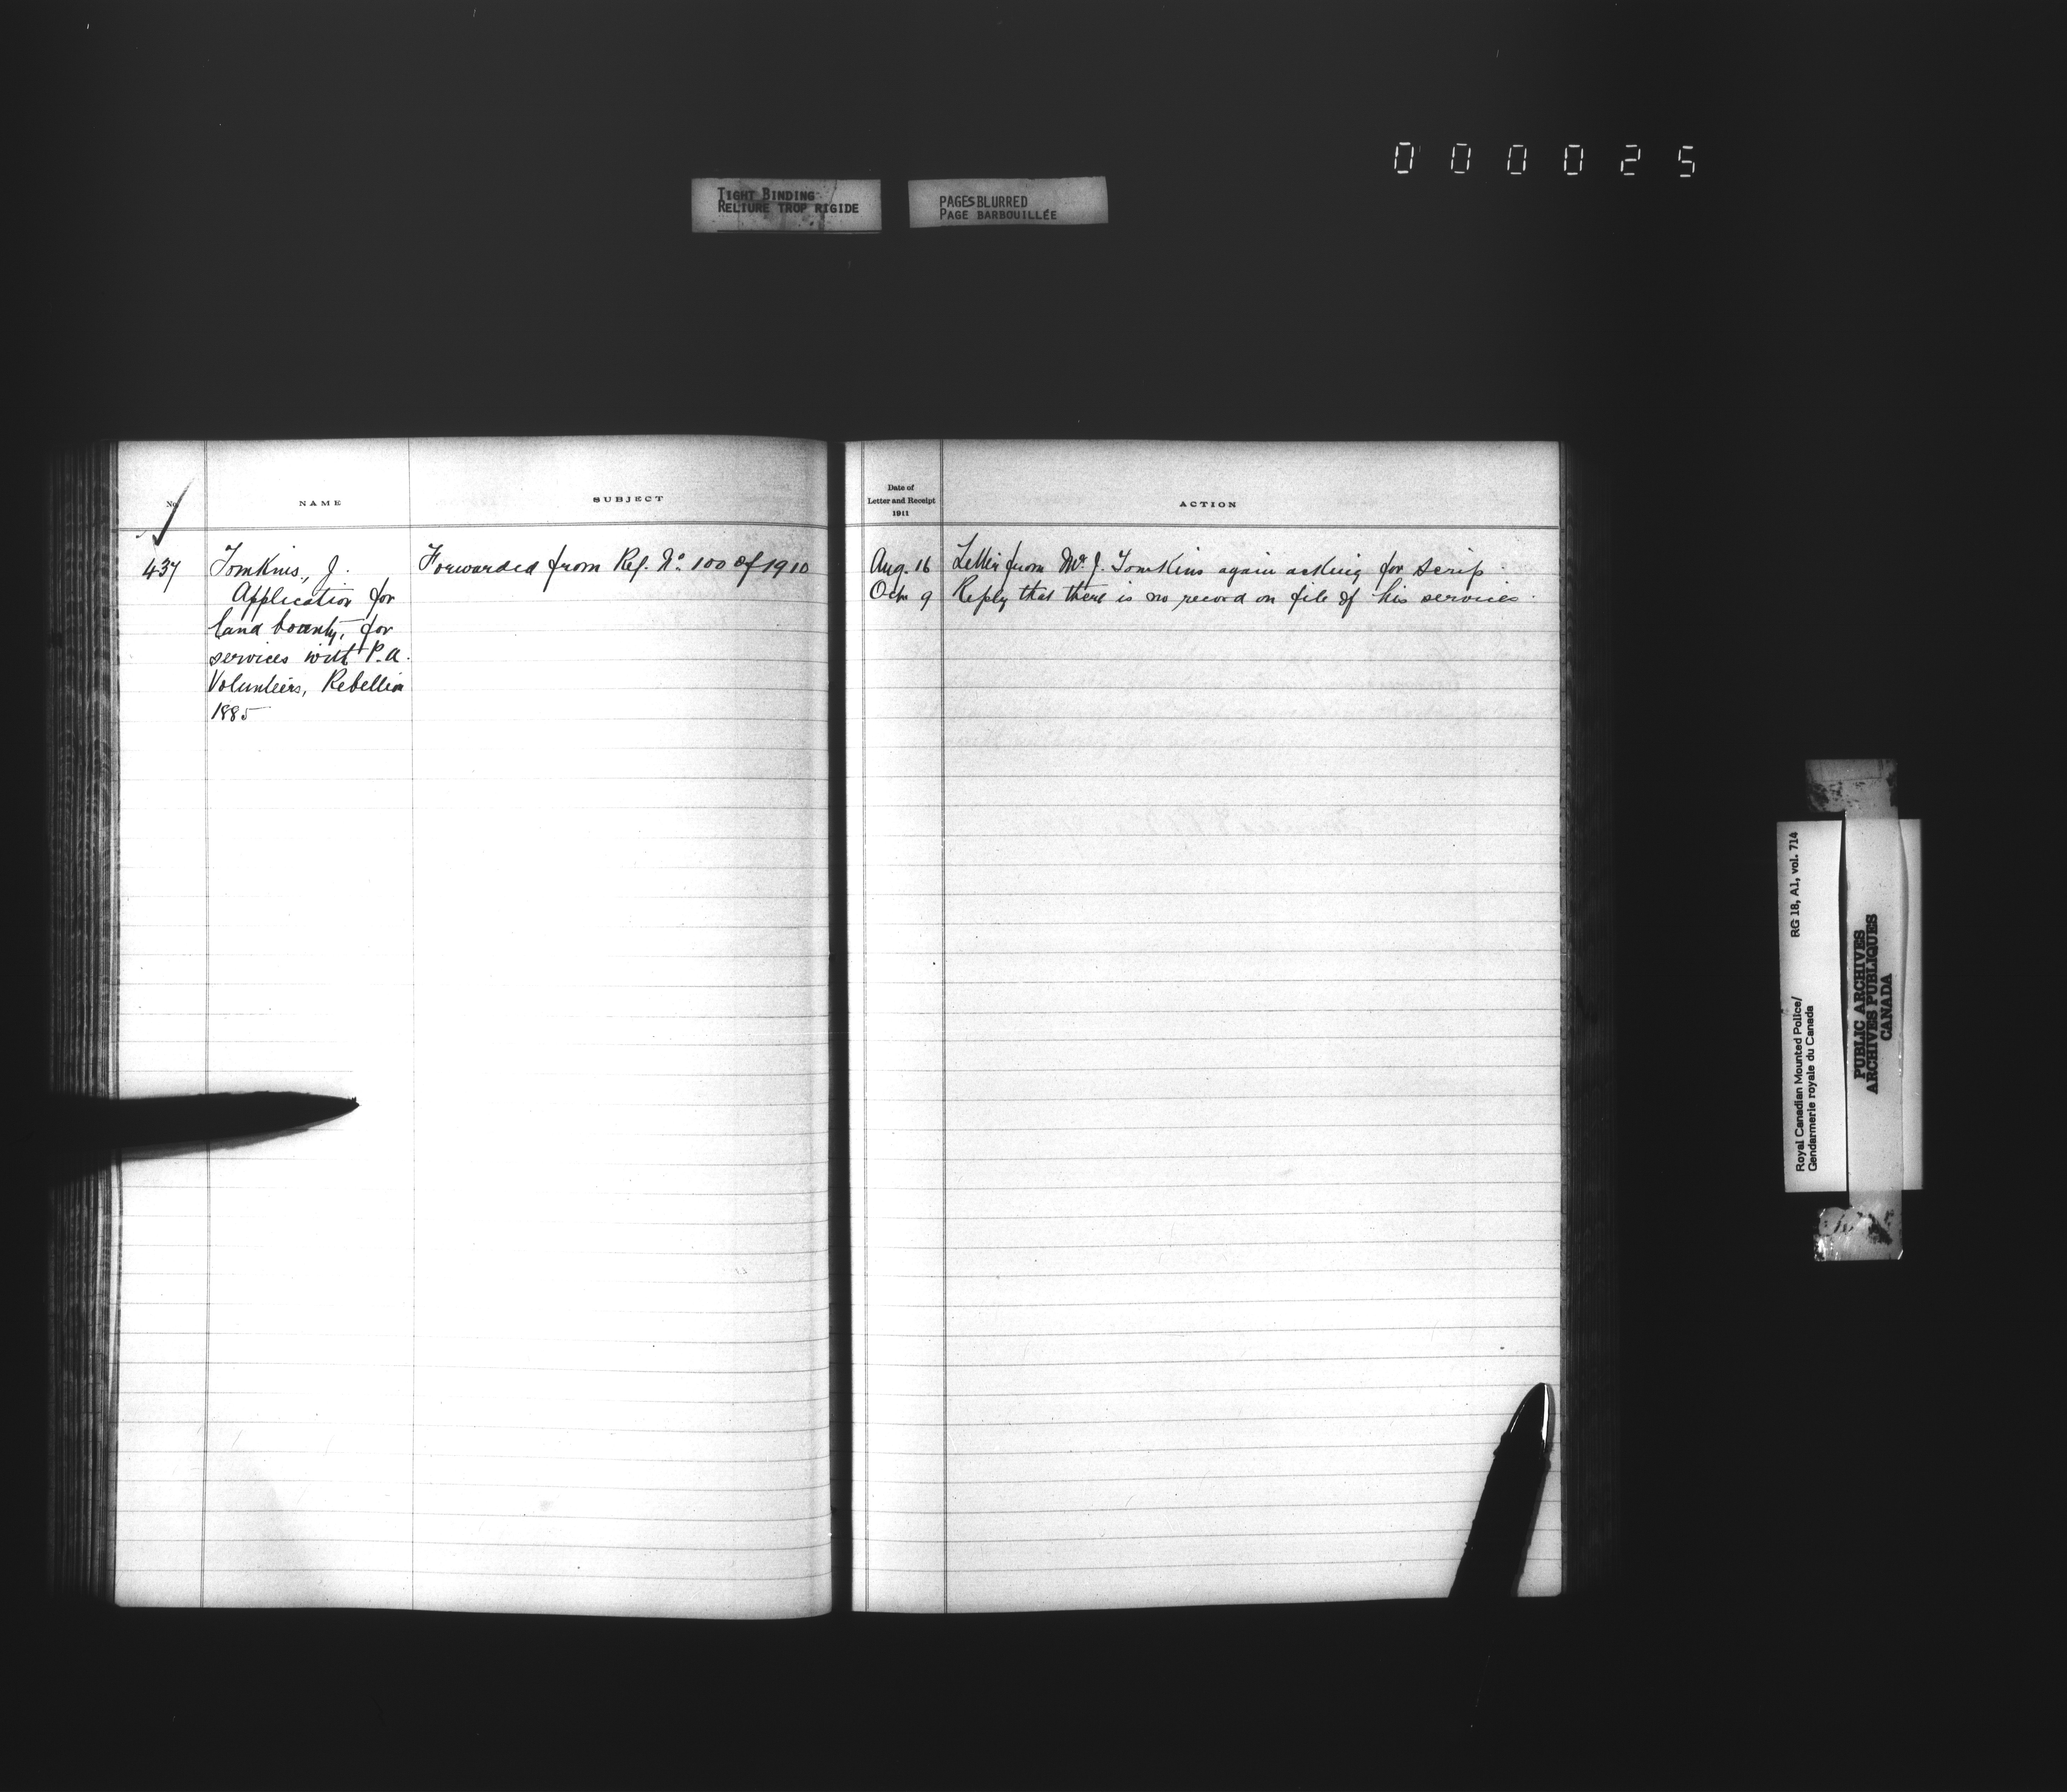 000025
TIGHT BINDING
RELIURE TROP RIGIDE
PAGES BLURRED
PAGE BARBOUILLÉE
No
NAME
SUBJECT
437
Tomkins, J.
Application for
land bounty, for
services with P.A.
Volunteers, Rebellion
1885
Forwarded from Ref. No. 100 of 1910
Date of
Letter and Receipt
1911
ACTION
Aug. 16 Letter from Mr. J. Tomkins again asking for scrip
Oct 9 Reply that there is no record on file of his services.
Royal Canadian Mounted Police/
Gendarmerie royale du Canada
RG 18, A1, vol. 714
PUBLIC ARCHIVES
ARCHIVES PUBLIQUES
CANADA